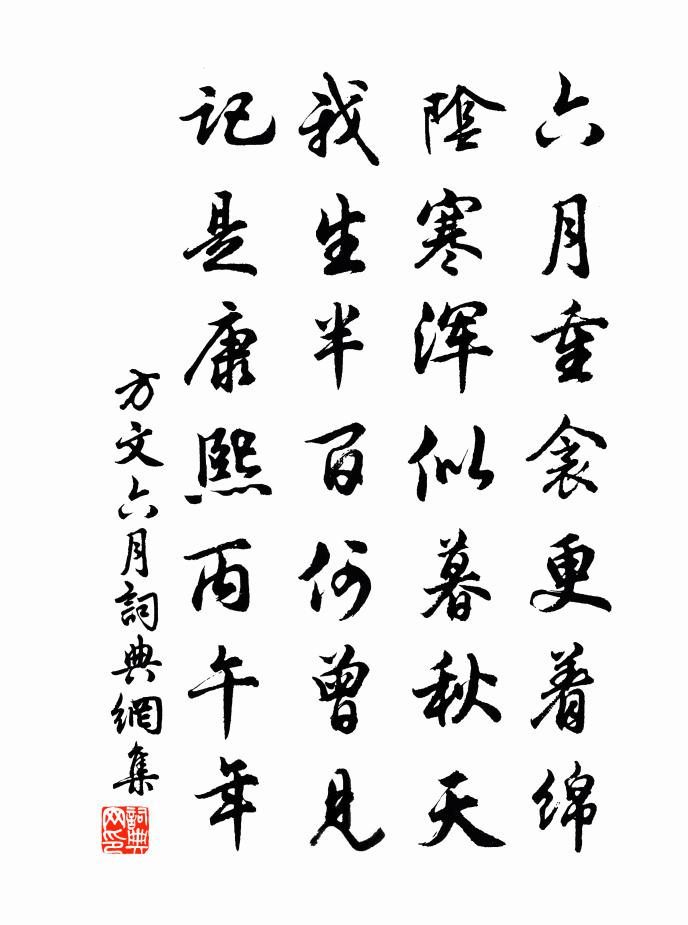 六月重衾更着绵
陰寒浑似暮秋天
我生半百何曾見
记是康熙丙午年
方文六月詞典網集
詞典网印